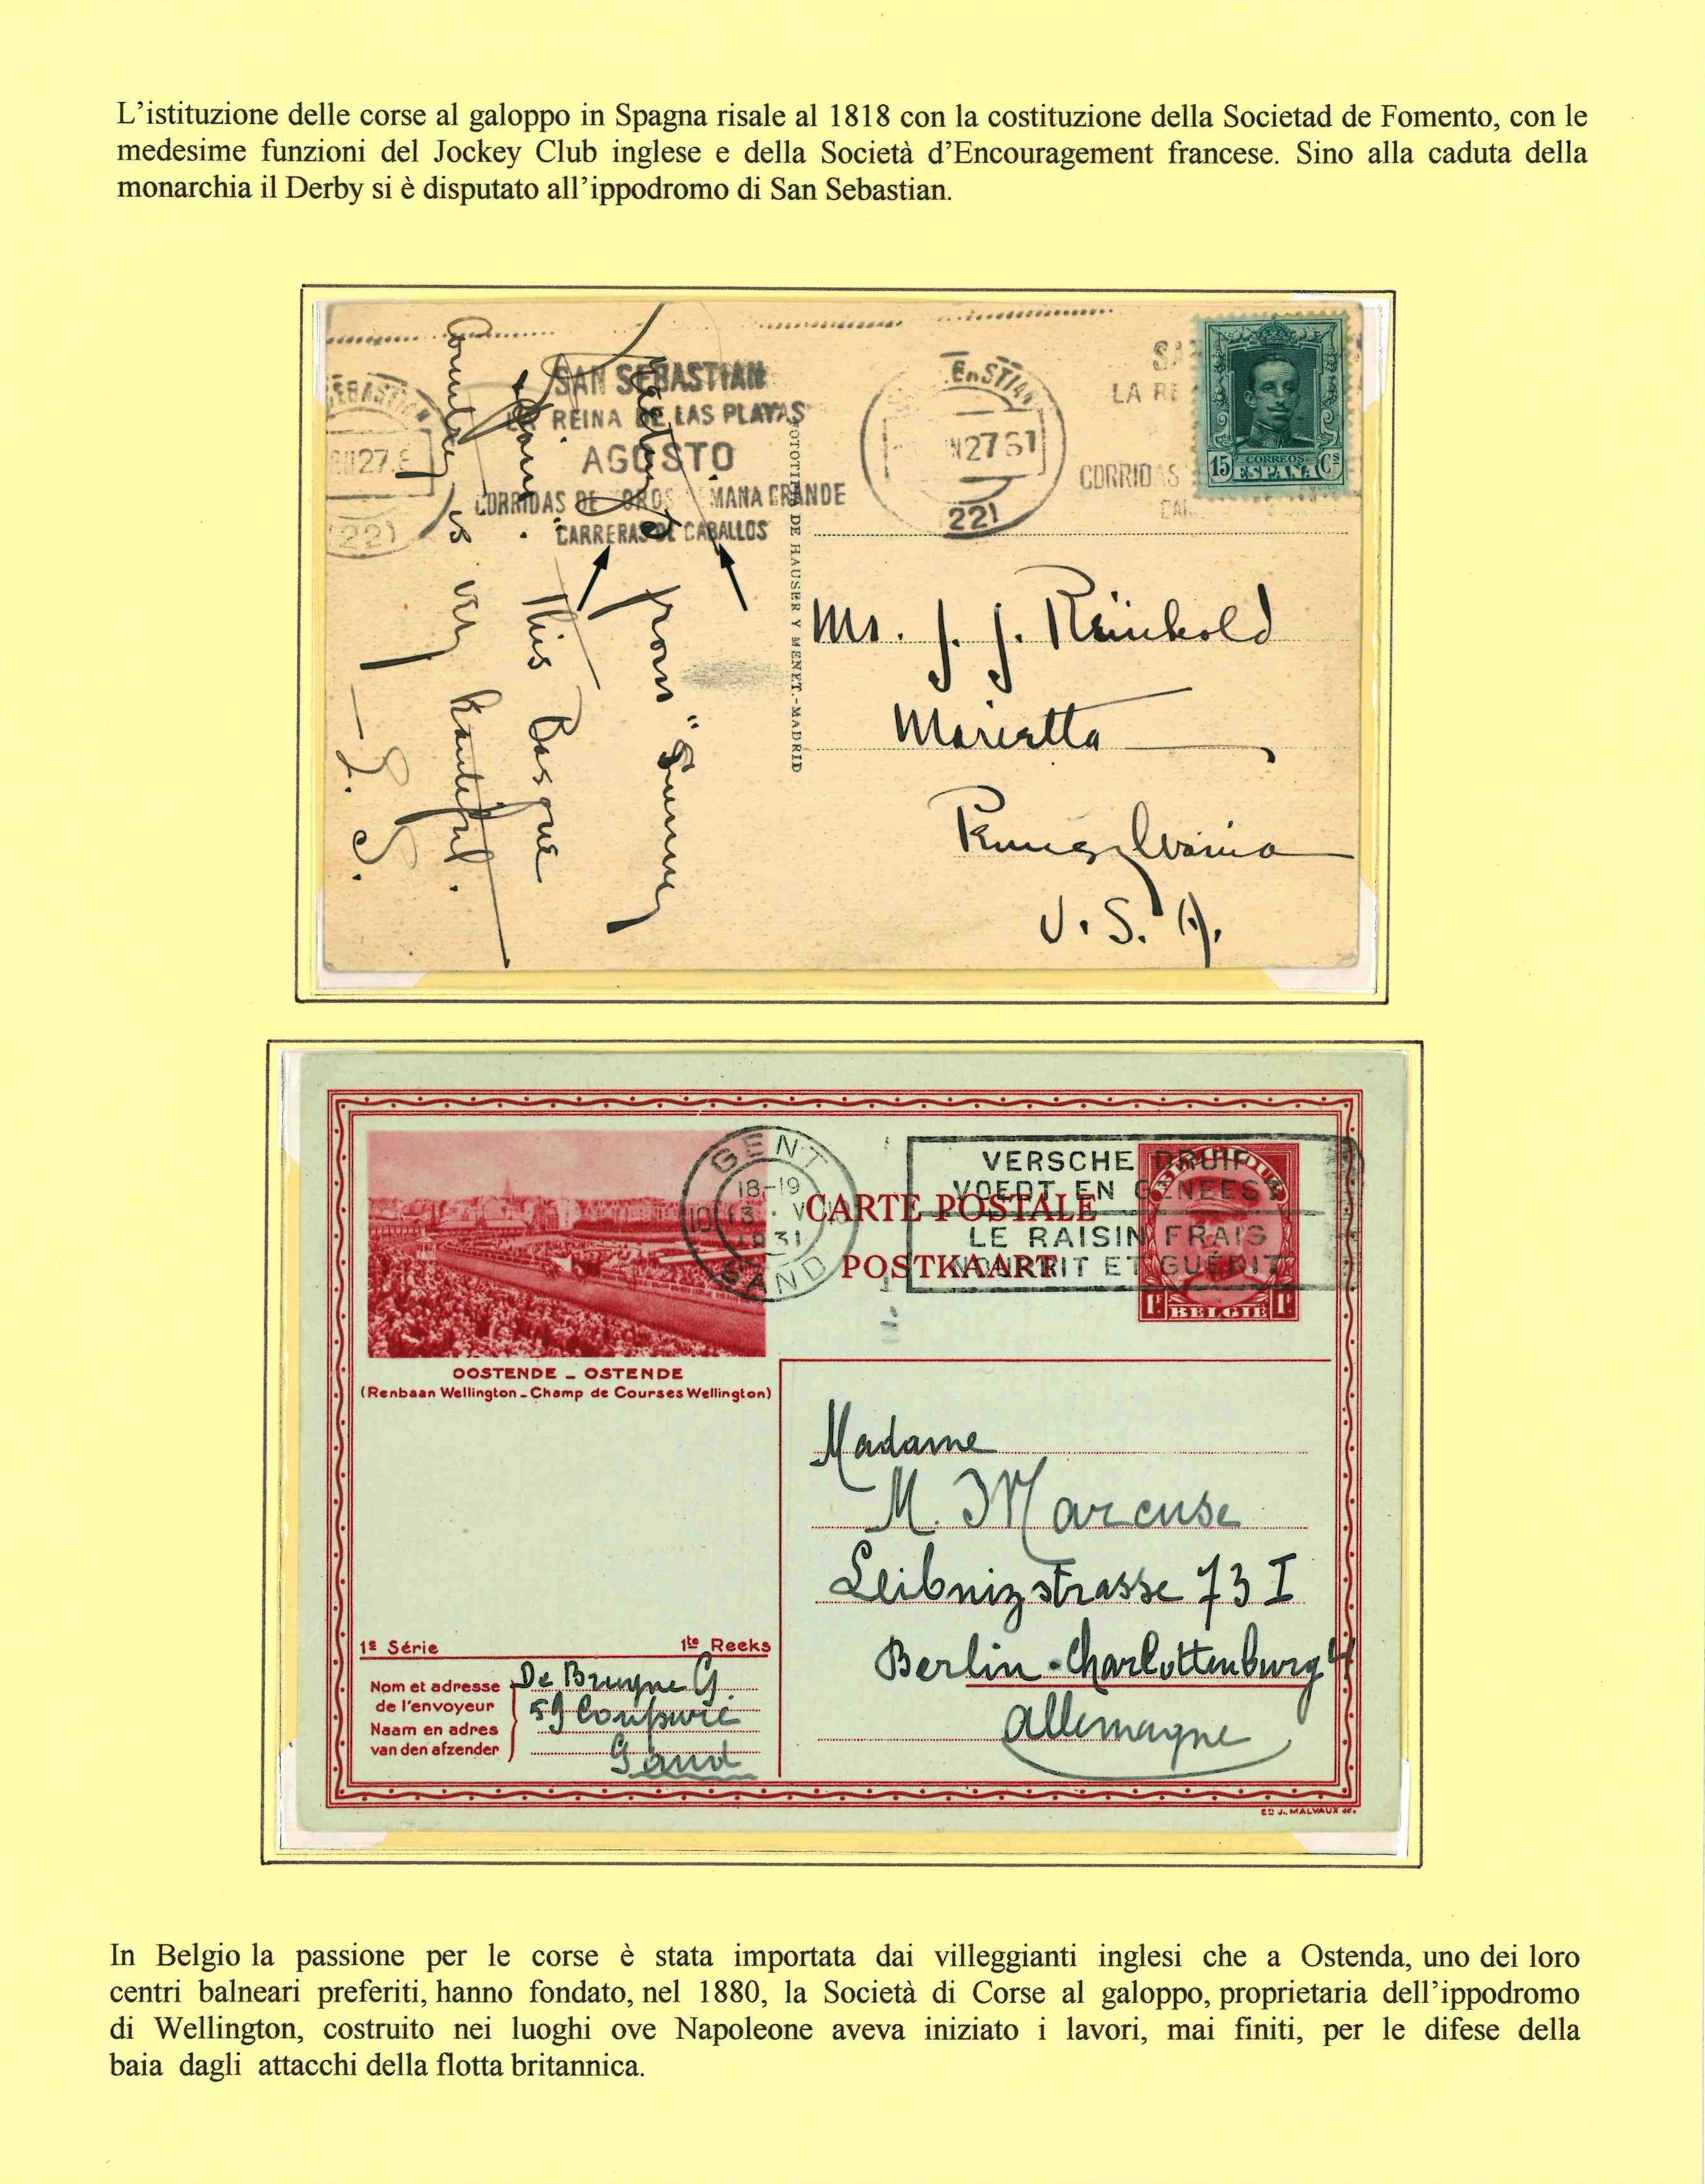 L'istituzione delle corse al galoppo in Spagna risale al 1818 con la costituzione della Societad de Fomento, con le
medesime funzioni del Jockey Club inglese e della Società d'Encouragement francese. Sino alla caduta della
monarchia il Derby si è disputato all'ippodromo di San Sebastian.
SEBASTIAN
27.
(22)
SAN SEBASTIAN
LA REINA DE LAS PLAYAS
AGOSTO
CORRIDAS DE TOROS SEMANA GRANDE
CARRERAS DE CABALLOS
27
(22)
LA RE
CORRIDAS
15 CORREOS Cs
ESPAÑA
FOTOTIPIA DE HAUSER Y MENET.-MADRID
from "Sunny
Spain". This Basque
Country is very beautiful.
— L. S.
Mr. J. J. Reinhold
Marietta
Pennsylvania
U. S. A.
GENT
18-19
13 · V
1931
GAND
VERSCHE DRUIF
VOEDT EN GENEEST
LE RAISIN FRAIS
NOURRIT ET GUÉRIT
CARTE POSTALE
POSTKAART
BELGIQUE
1F BELGIE 1F
OOSTENDE - OSTENDE
(Renbaan Wellington - Champ de Courses Wellington)
Madame
M. Marcuse
Leibnizstrasse 73 I
Berlin-Charlottenburg 4
Allemagne
1e Série 1te Reeks
Nom et adresse
de l'envoyeur
Naam en adres
van den afzender
De Bruyne G.
59 Coupure
Gand
ED J. MALVAUX
In Belgio la passione per le corse è stata importata dai villeggianti inglesi che a Ostenda, uno dei loro
centri balneari preferiti, hanno fondato, nel 1880, la Società di Corse al galoppo, proprietaria dell'ippodromo
di Wellington, costruito nei luoghi ove Napoleone aveva iniziato i lavori, mai finiti, per le difese della
baia dagli attacchi della flotta britannica.